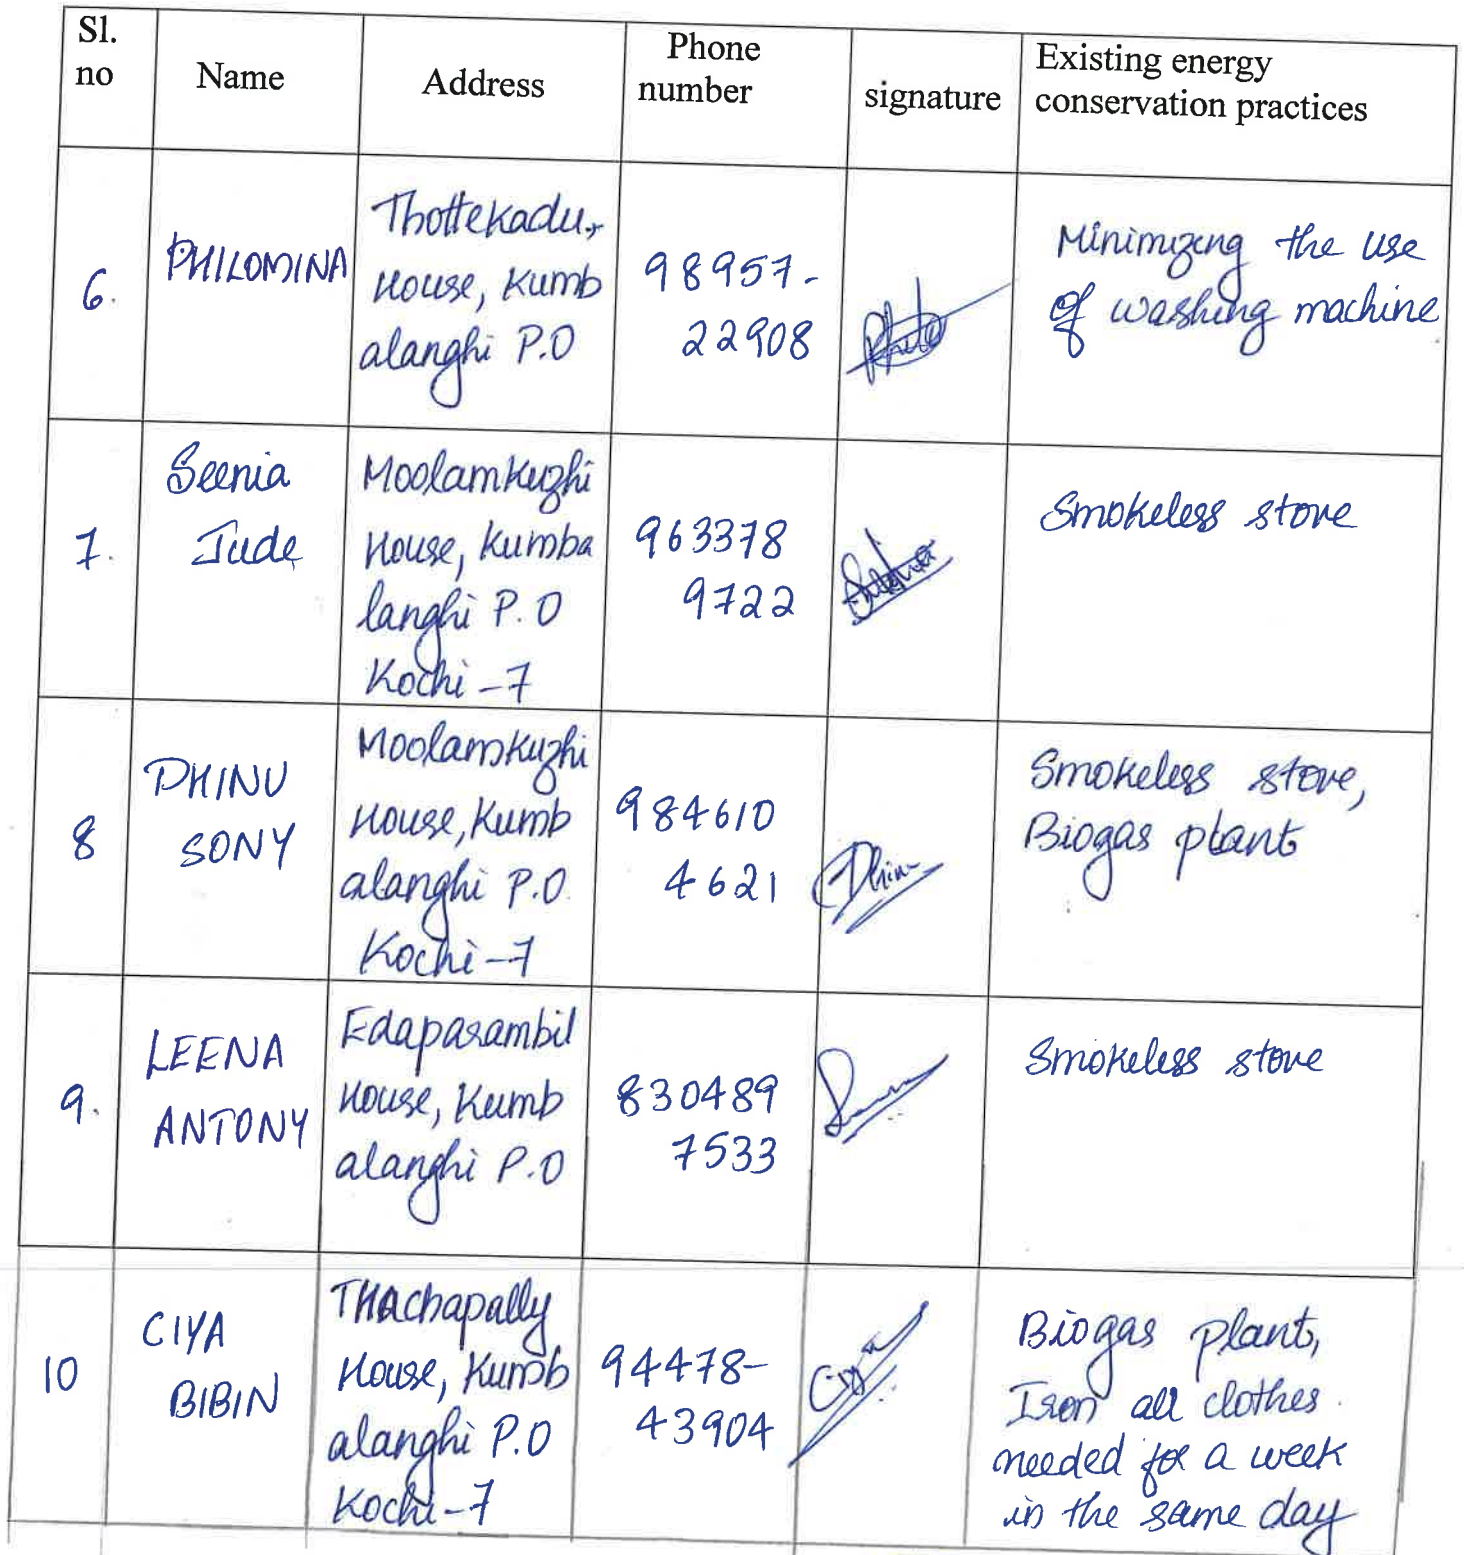 Sl.
no
Name
Address
Phone
number
signature
Existing energy
conservation practices
6.
PHILOMINA
Thottekadu,
House, Kumb
alanghi P.O
98957-
22908
Philo
Minimizing the use
of washing machine
7.
Seenia
Jude
Moolamkuzhi
House, Kumba
langhi P.O
Kochi -7
963378
9722
Smokeless stove
8
DHINU
SONY
Moolamkuzhi
House, Kumb
alanghi P.O.
Kochi -7
984610
4621
Dhinu
Smokeless stove,
Biogas plant
9.
LEENA
ANTONY
Edaparambil
House, Kumb
alanghi P.O
830489
7533
Smokeless stove
10
CIYA
BIBIN
THachapally
House, Kumb
alanghi P.O
Kochi-7
94478-
43904
Ciya
Biogas plant,
Iron all clothes.
needed for a week
in the same day